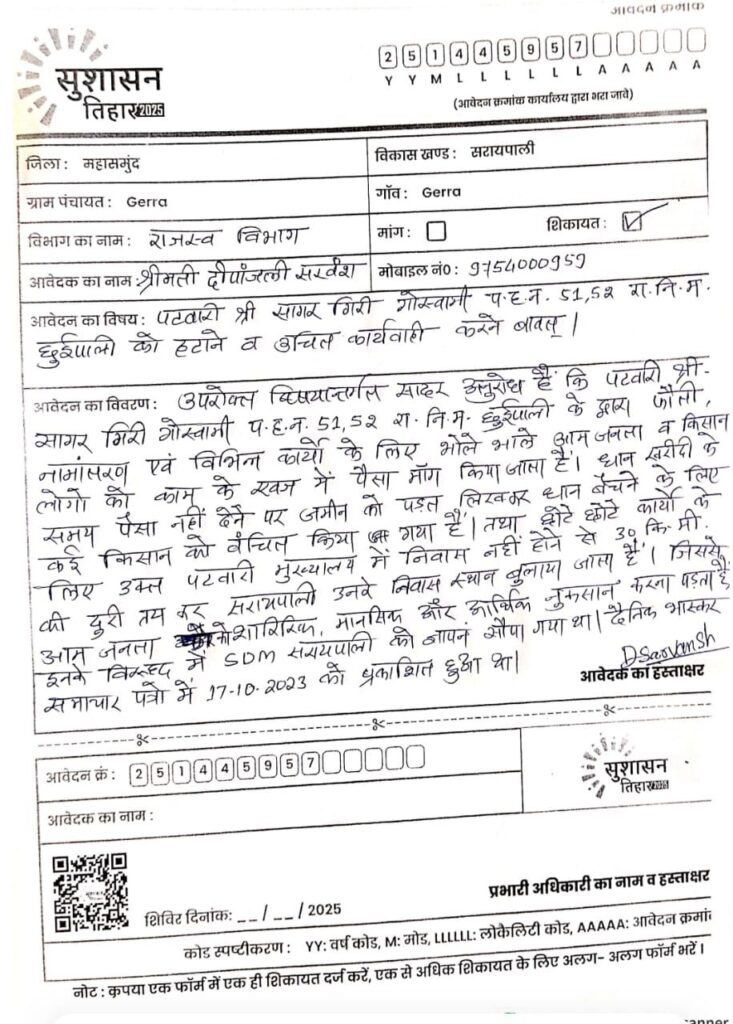 आवेदन क्रमांक
सुशासन
तिहार 2025
2 5 1 4 4 5 9 5 7
Y Y M L L L L L L A A A A A
(आवेदन क्रमांक कार्यालय द्वारा भरा जावे)
जिला : महासमुंद
विकास खण्ड : सरायपाली
ग्राम पंचायत : Gerra
गाँव : Gerra
विभाग का नाम : राजस्व विभाग
मांग :
शिकायत :
आवेदक का नाम : श्रीमती दीपांजली सरवंश
मोबाइल नं0 : 9754000959
आवेदन का विषय : पटवारी श्री सागर गिरी गोस्वामी प.ह.न. 51,52 रा.नि.म.
छुईपाली को हटाने व उचित कार्यवाही करने बाबत् |
आवेदन का विवरण : उपरोक्त विषयान्तर्गत सादर अनुरोध है कि पटवारी श्री-
सागर गिरी गोस्वामी प.ह.न. 51,52 रा.नि.म. छुईपाली के द्वारा फौती,
नामांतरण एवं विभिन्न कार्यो के लिए भोले भाले आम जनता व किसान
लोगो को काम के एवज में पैसा माँग किया जाता है। धान खरीदी के
समय पैसा नहीं देने पर जमीन को पड़त लिखकर धान बेचने के लिए
कई किसान को वंचित किया गया है। तथा छोटे छोटे कार्यो के
लिए उक्त पटवारी मुख्यालय में निवास नहीं होने से 30 कि.मी.
की दुरी तय कर सरायपाली उनके निवास स्थान बुलाया जाता है। जिससे
आम जनता को शारिरिक, मानसिक और आर्थिक नुकसान करना पड़ता है
इनके विरूध्द में SDM सरायपाली को ज्ञापन सौपा गया था। दैनिक भास्कर
समाचार पत्रो में 17-10-2023 को प्रकाशित हुआ था।
DSarvansh
आवेदक का हस्ताक्षर
आवेदन क्रं : 2 5 1 4 4 5 9 5 7
सुशासन
तिहार 2025
आवेदक का नाम :
प्रभारी अधिकारी का नाम व हस्ताक्षर
शिविर दिनांक: __ / __ / 2025
कोड स्पष्टीकरण : YY: वर्ष कोड, M: मोड, LLLLLL: लोकैलिटी कोड, AAAAA: आवेदन क्रमां
नोट : कृपया एक फॉर्म में एक ही शिकायत दर्ज करें, एक से अधिक शिकायत के लिए अलग- अलग फॉर्म भरें ।